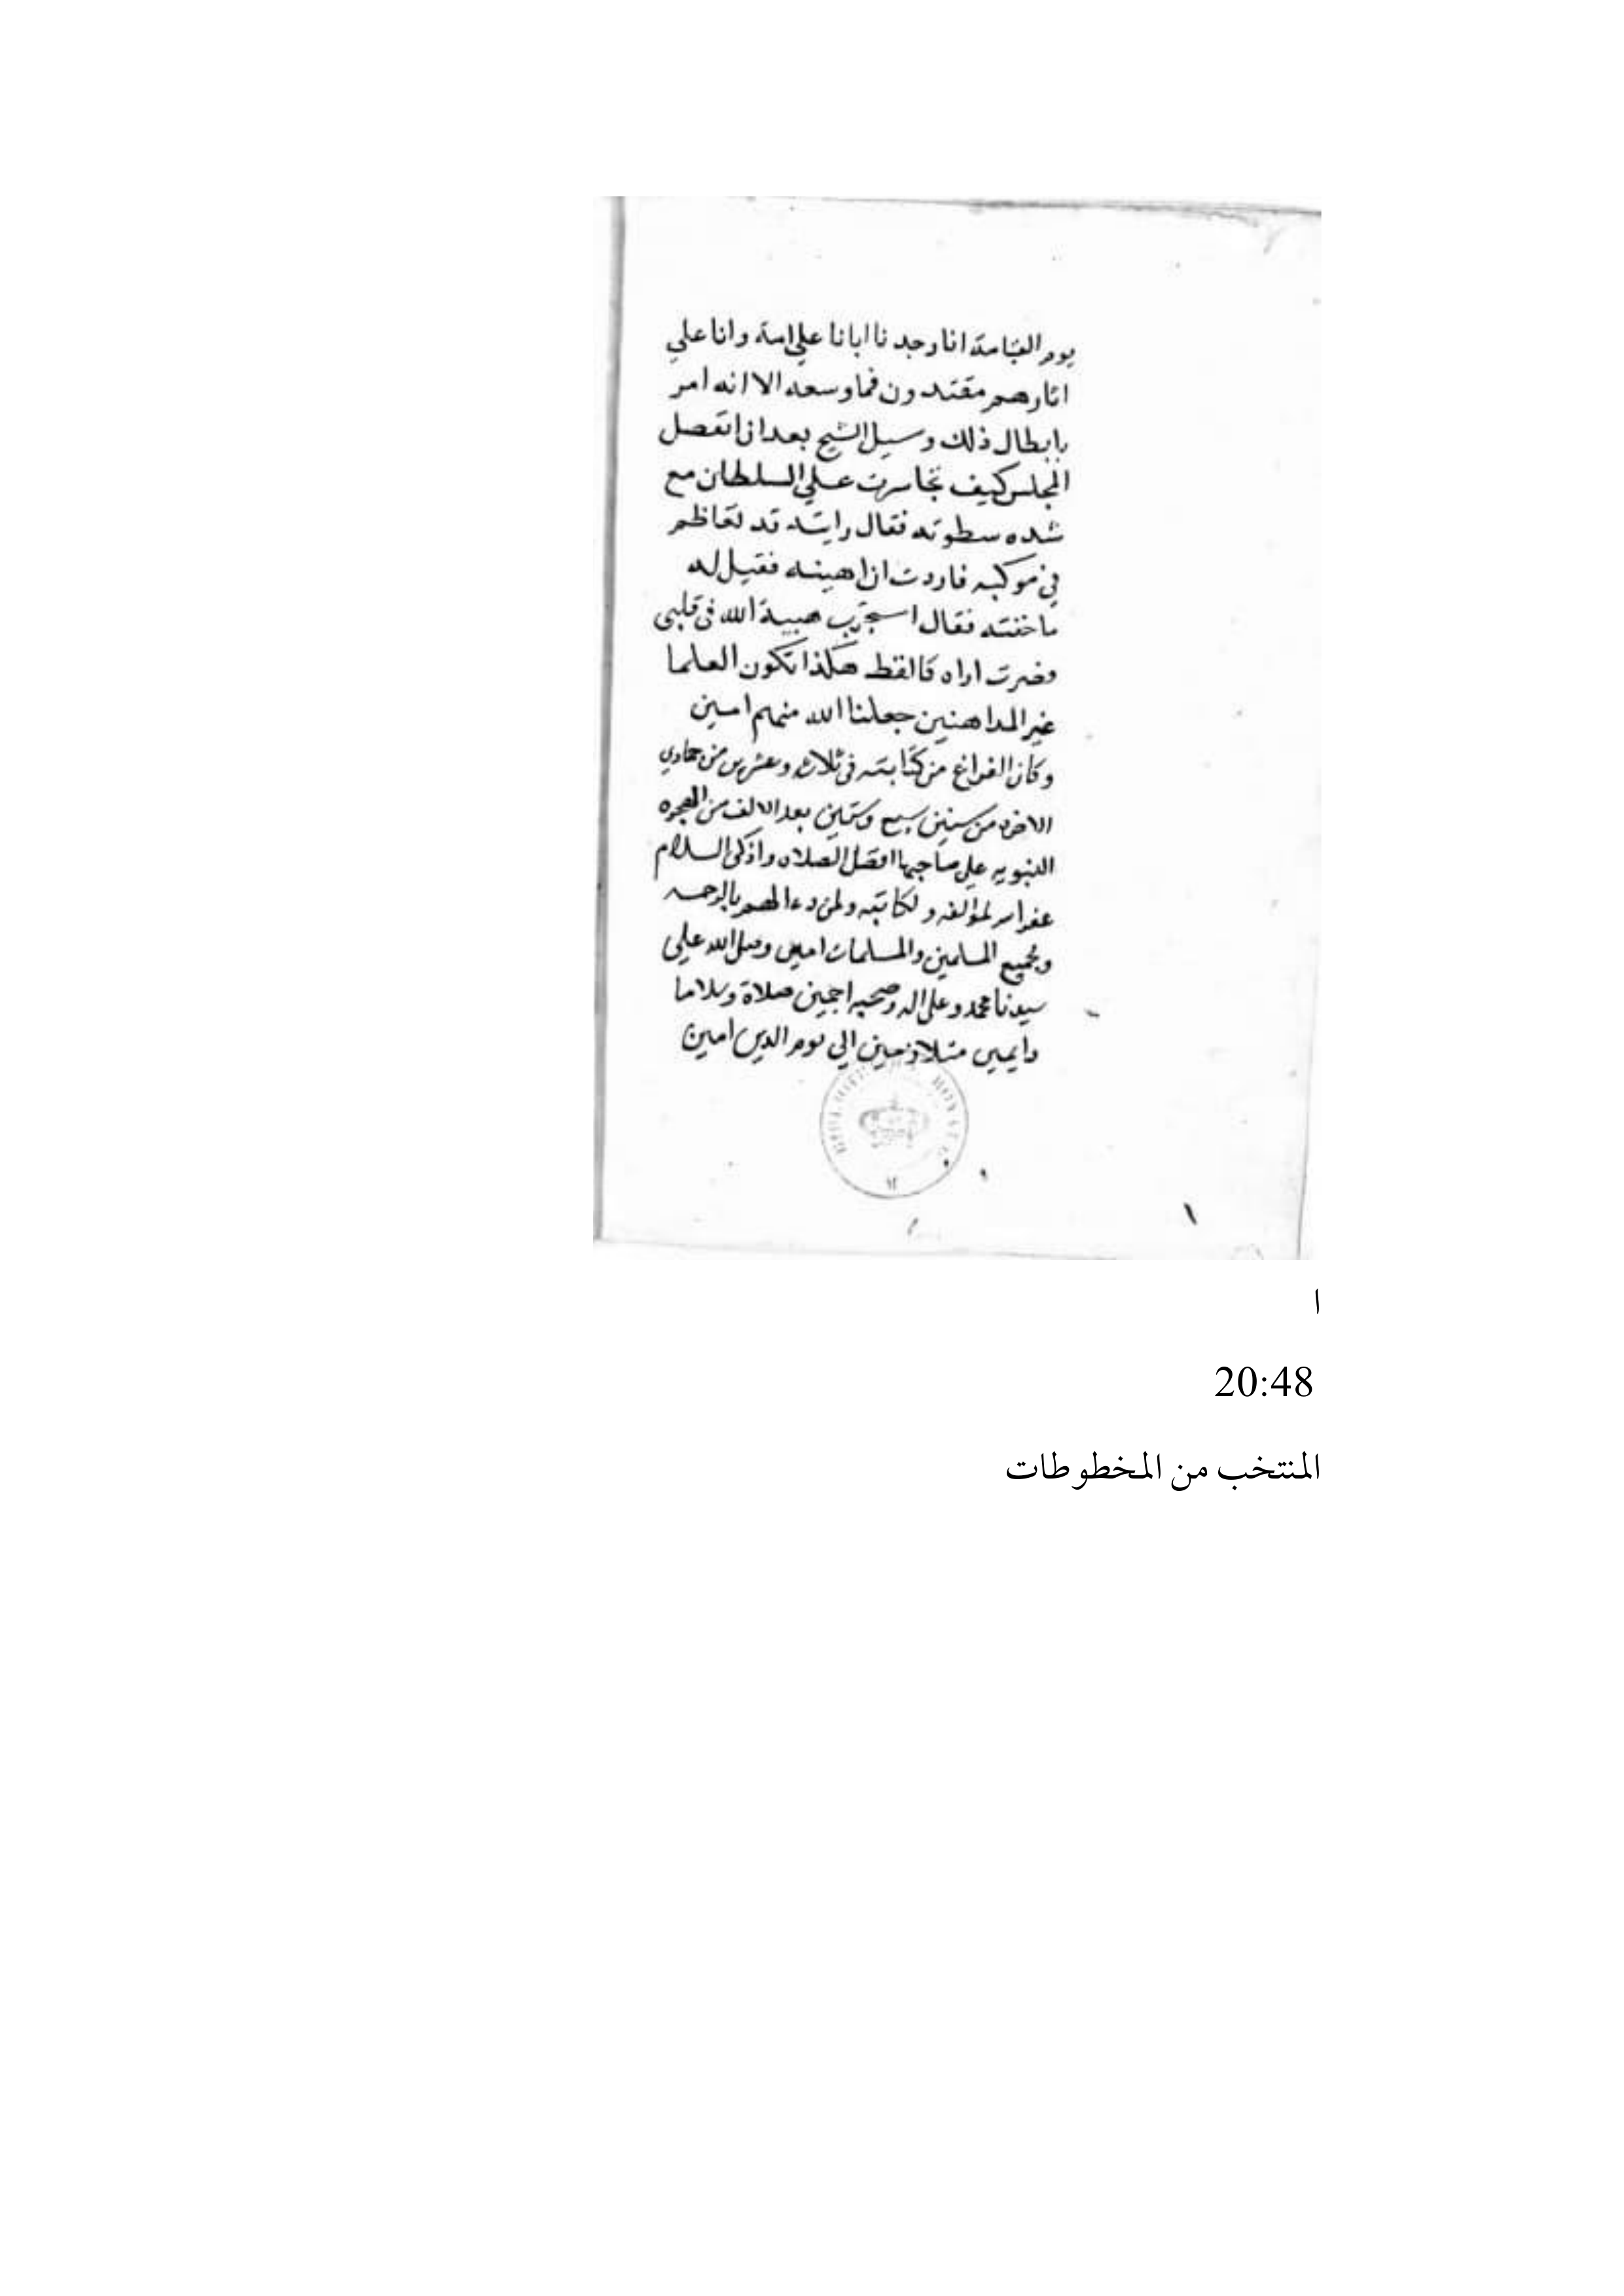 يوم القيامة انا وجدنا ابانا علي امة وانا علي
اثارهم مقتدون فما وسعه الا انه امر
بابطال ذلك وسيل الشيخ بعد ان انفصل
المجلس كيف تجاسرت علي السلطان مع
شده سطوته فقال رايته قد تعاظم
في موكبه فاردت ان اهينه فقيل له
ما خفته فقال هيبة الله في قلبي
وضرت اراه كالقط هكذا تكون العلما
غير المداهنين جعلنا الله منهم امين
وكان الفراغ من كتابته في ثلاث وعشرين من جمادي
الاخره من سنين سبع وستين بعد الالف من الهجره
النبويه علي صاحبها افضل الصلاه وازكي السلام
غفر الله لمؤلفه ولكاتبه ولمن دعا لهم بالرحمه
ولجميع المسلمين والمسلمات امين وصل الله علي
سيدنا محمد وعلي اله وصحبه اجمعين صلاة وسلاما
دايمين متلازمين الي يوم الدين امين
ا
20:48
المنتخب من المخطوطات